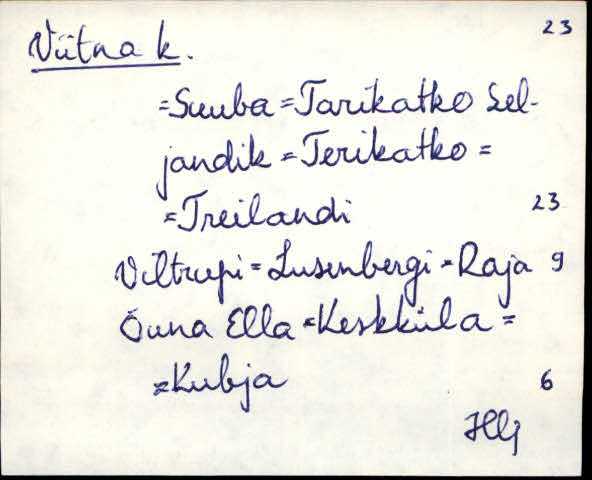 Viitna k. 23
=Suuba=Tarikatko Sel-
jandik=Terikatko=
=Treilandi 23
Viltrupi=Lusenbergi=Raja 9
Õuna Ella=Keskküla=
=Kubja 6